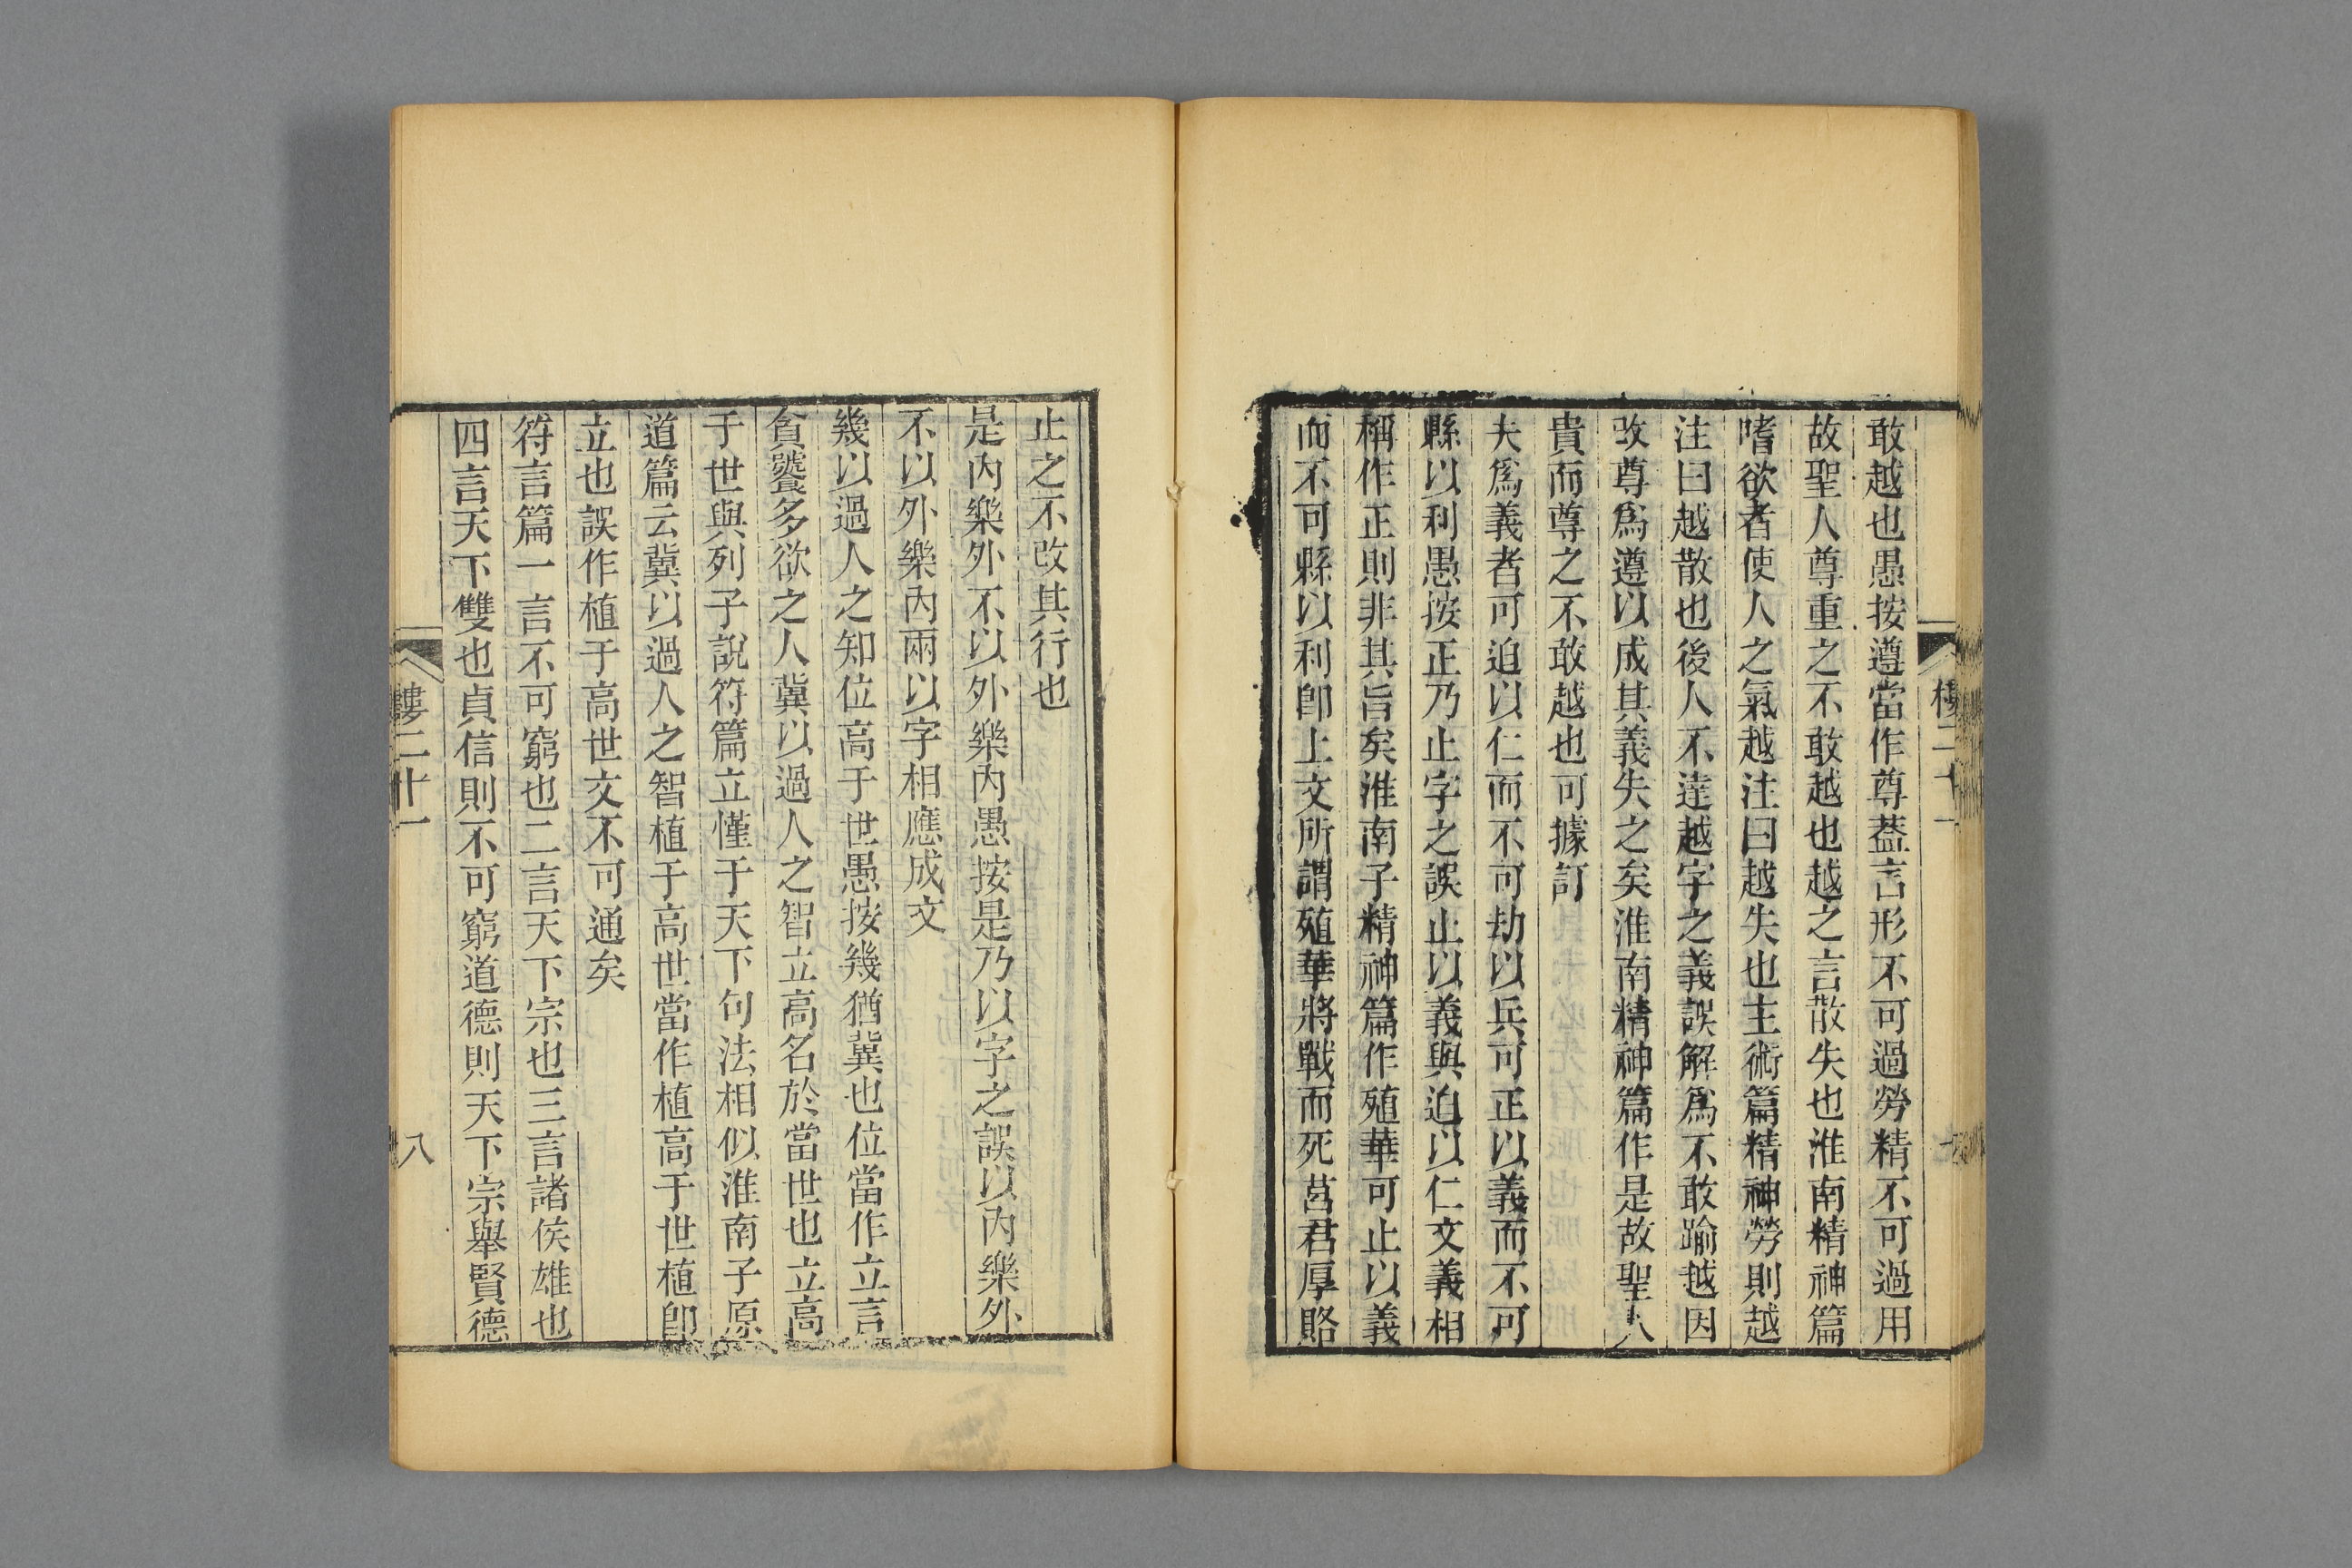 敢越也愚按遵當作尊葢言形不可過勞精不可過用
故聖人尊重之不敢越也越之言散失也淮南精神篇
嗜欲者使人之氣越注曰越失也主術篇精神勞則越
注曰越散也後人不達越字之義誤解爲不敢踰越因
改尊爲遵以成其義失之矣淮南精神篇作是故聖人
貴而尊之不敢越也可據訂
夫爲義者可迫以仁而不可劫以兵可正以義而不可
縣以利愚按正乃止字之誤止以義與迫以仁文義相
稱作正則非其旨矣淮南子精神篇作殖華可止以義
而不可縣以利卽上文所謂殖華將戰而死莒君厚賂
止之不改其行也
是內樂外不以外樂內愚按是乃以字之誤以內樂外
不以外樂內兩以字相應成文
幾以過人之知位高于世愚按幾猶冀也位當作立言
貪饕多欲之人冀以過人之智立高名於當世也立高
于世與列子說符篇立慬于天下句法相似淮南子原
道篇云冀以過人之智植于高世當作植高于世植卽
立也誤作植于高世文不可通矣
符言篇一言不可窮也二言天下宗也三言諸侯雄也
四言天下雙也貞信則不可窮道德則天下宗舉賢德
樓二十一
八